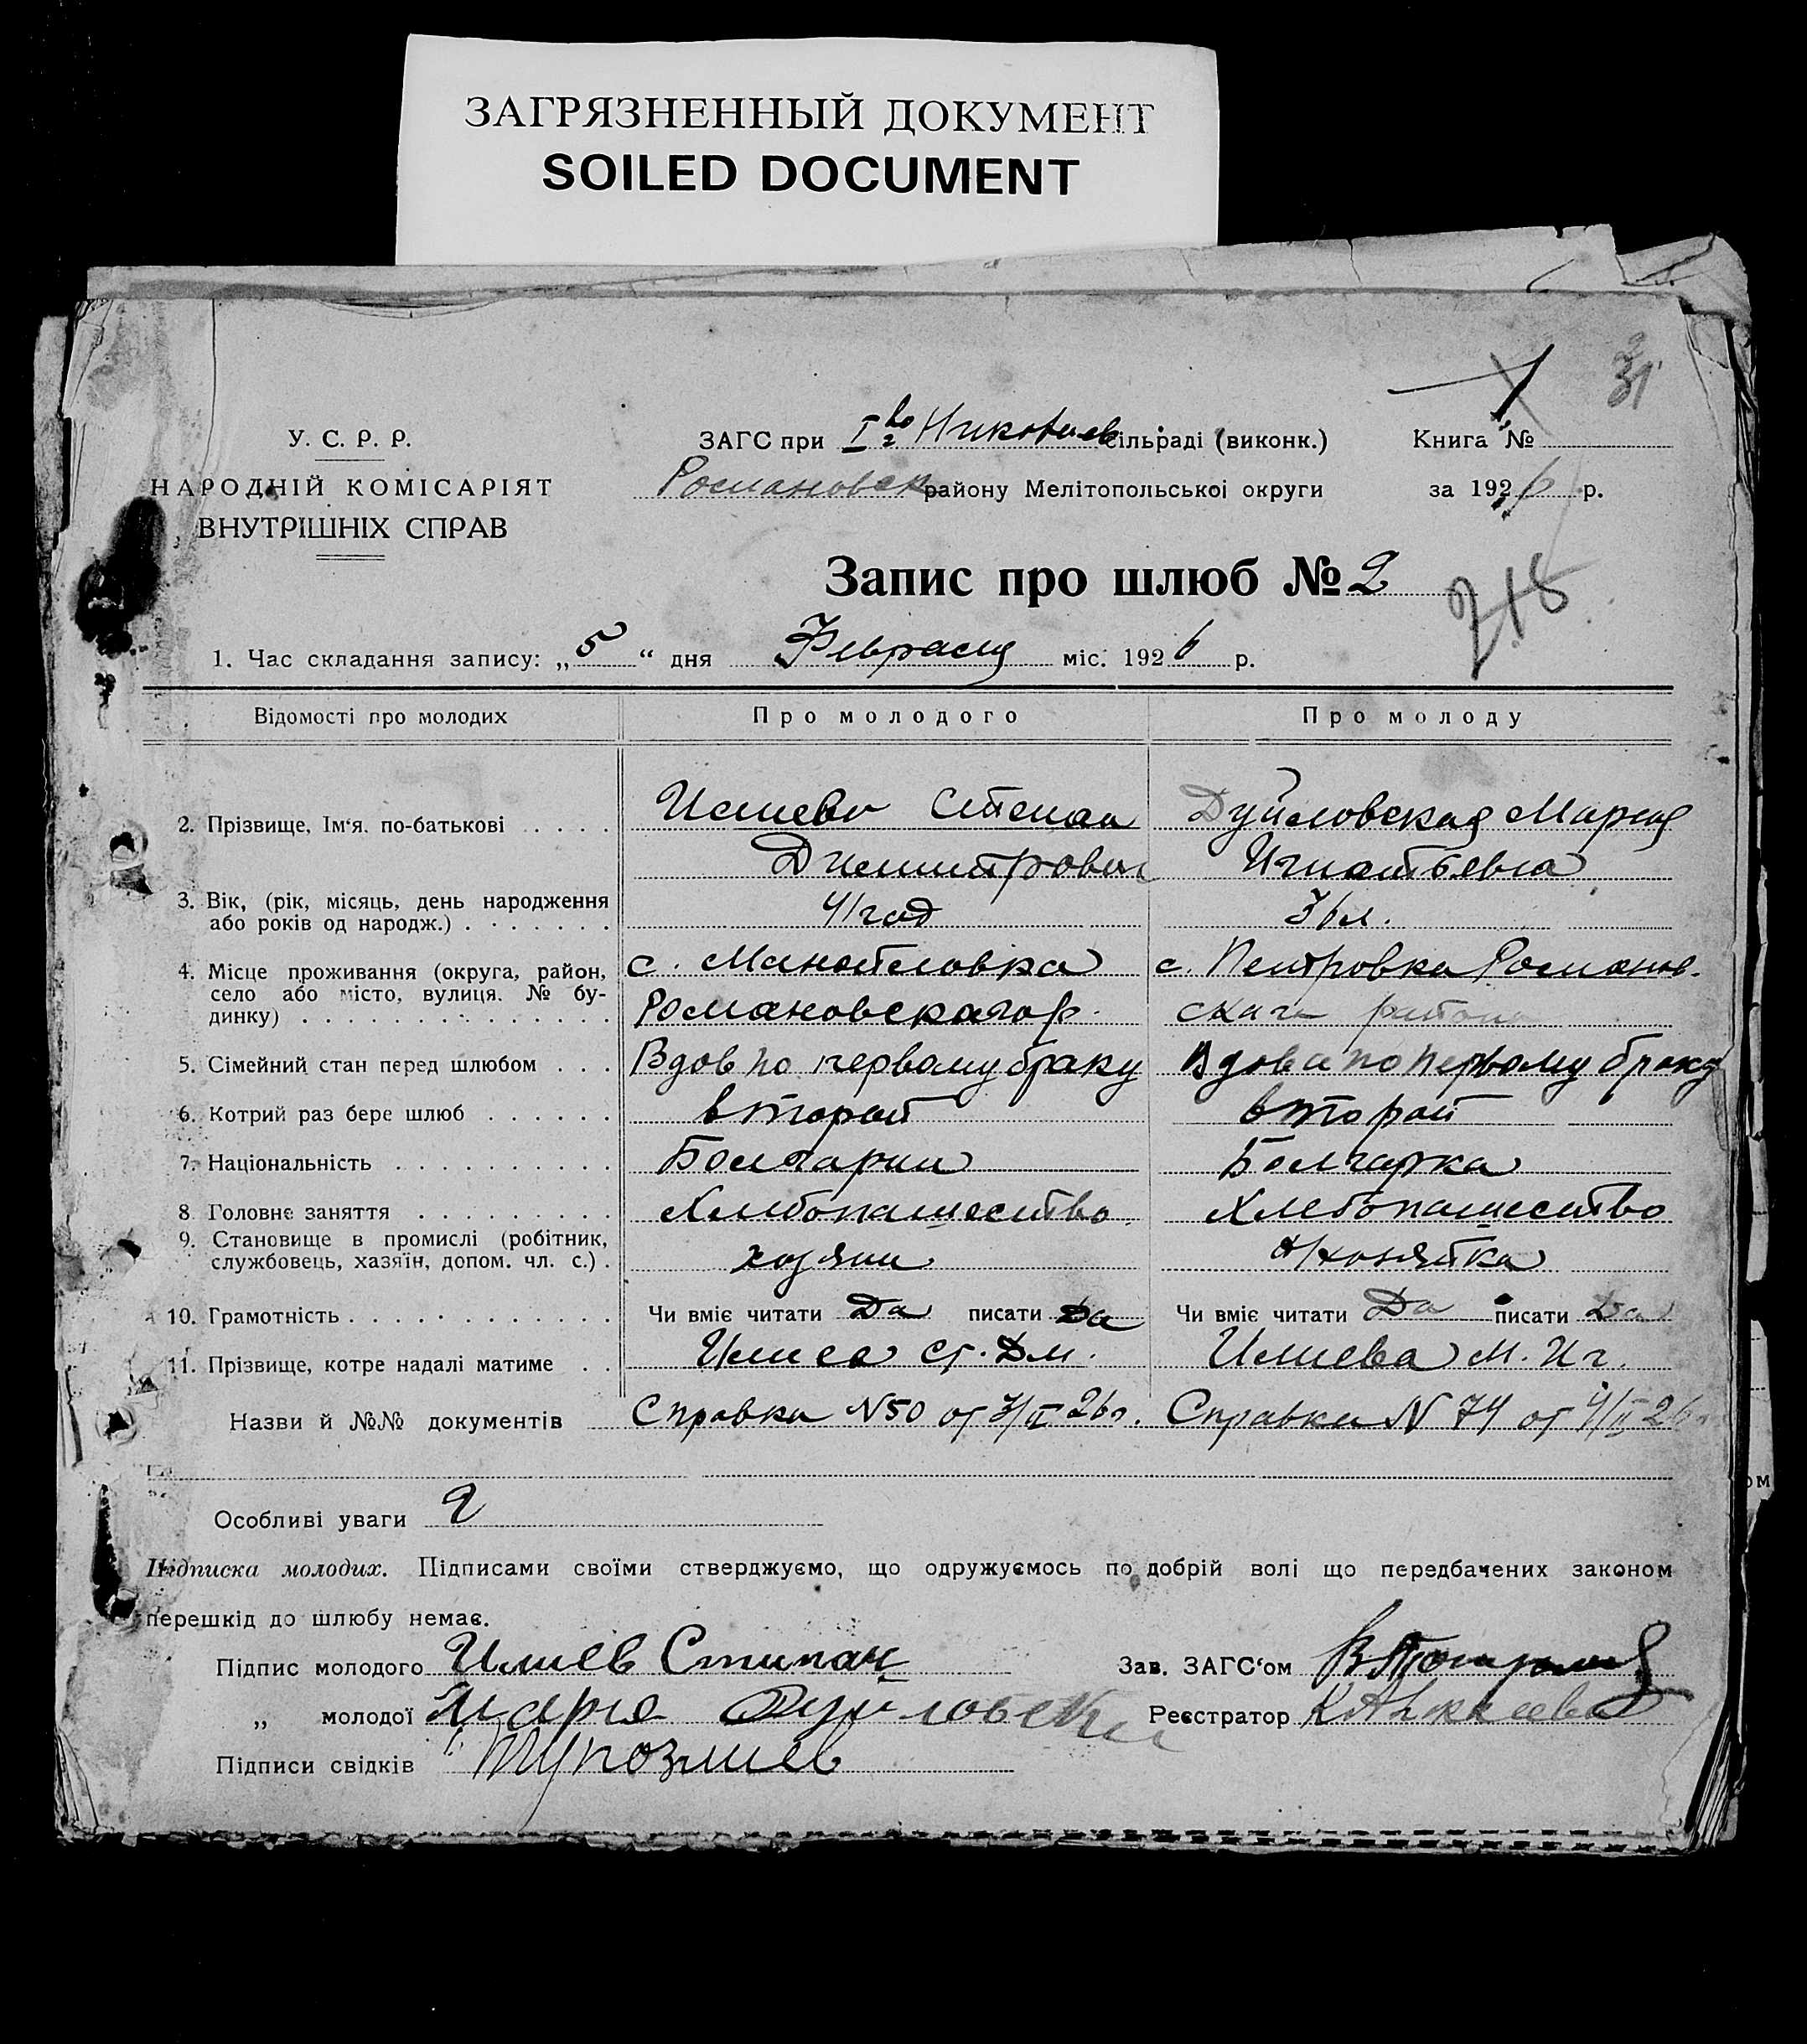 ЗАГРЯЗНЕННЫЙ ДОКУМЕНТ
SOILED DOCUMENT
31
У. С. Р. Р.
НАРОДНІЙ КОМІСАРІЯТ
ВНУТРІШНІХ СПРАВ
ЗАГС при сільраді (виконк.)
Романовск району Мелітопольської округи
Книга №
за 1926 р.
Запис про шлюб № 2
1. Час складання запису: „5“ дня Февраля міс. 1926 р.
Відомості про молодих Про молодого Про молоду
2. Прізвище, Ім‘я, по-батькові Илиев Степан Дуйловская Мария
Димитрович Игнатьевна
3. Вік, (рік, місяць, день народження
або років од народж.) 41 год 36 л.
4. Місце проживання (округа, район, с. Манойловка с. Петровка Романов-
село або місто, вулиця, № бу-
динку) Романовскаго р. скаго района
5. Сімейний стан перед шлюбом Вдов по первому браку Вдова по первому браку
6. Котрий раз бере шлюб второй второй
7. Національність Болгарин Болгарка
8 Головне заняття Хлебопашество Хлебопашество
9. Становище в промислі (робітник,
службовець, хазяїн, допом. чл. с.) хозяин
10. Грамотність Чи вміє читати Да писати Да Чи вміє читати Да писати Да
11. Прізвище, котре надалі матиме Илиев Ст. Дм. Илиева М. Иг.
Назви й №№ документів Справка N 50 от 3/II 26 г. Справка N 74 от 4/II 26
Особливі уваги 2
Підписка молодих. Підписами своїми стверджуємо, що одружуємось по добрій волі що передбачених законом
перешкід до шлюбу немає.
Підпис молодого Илиев Стипан Зав. ЗАГС‘ом
„ молодої Мария Дуйловска Реєстратор
Підписи свідків